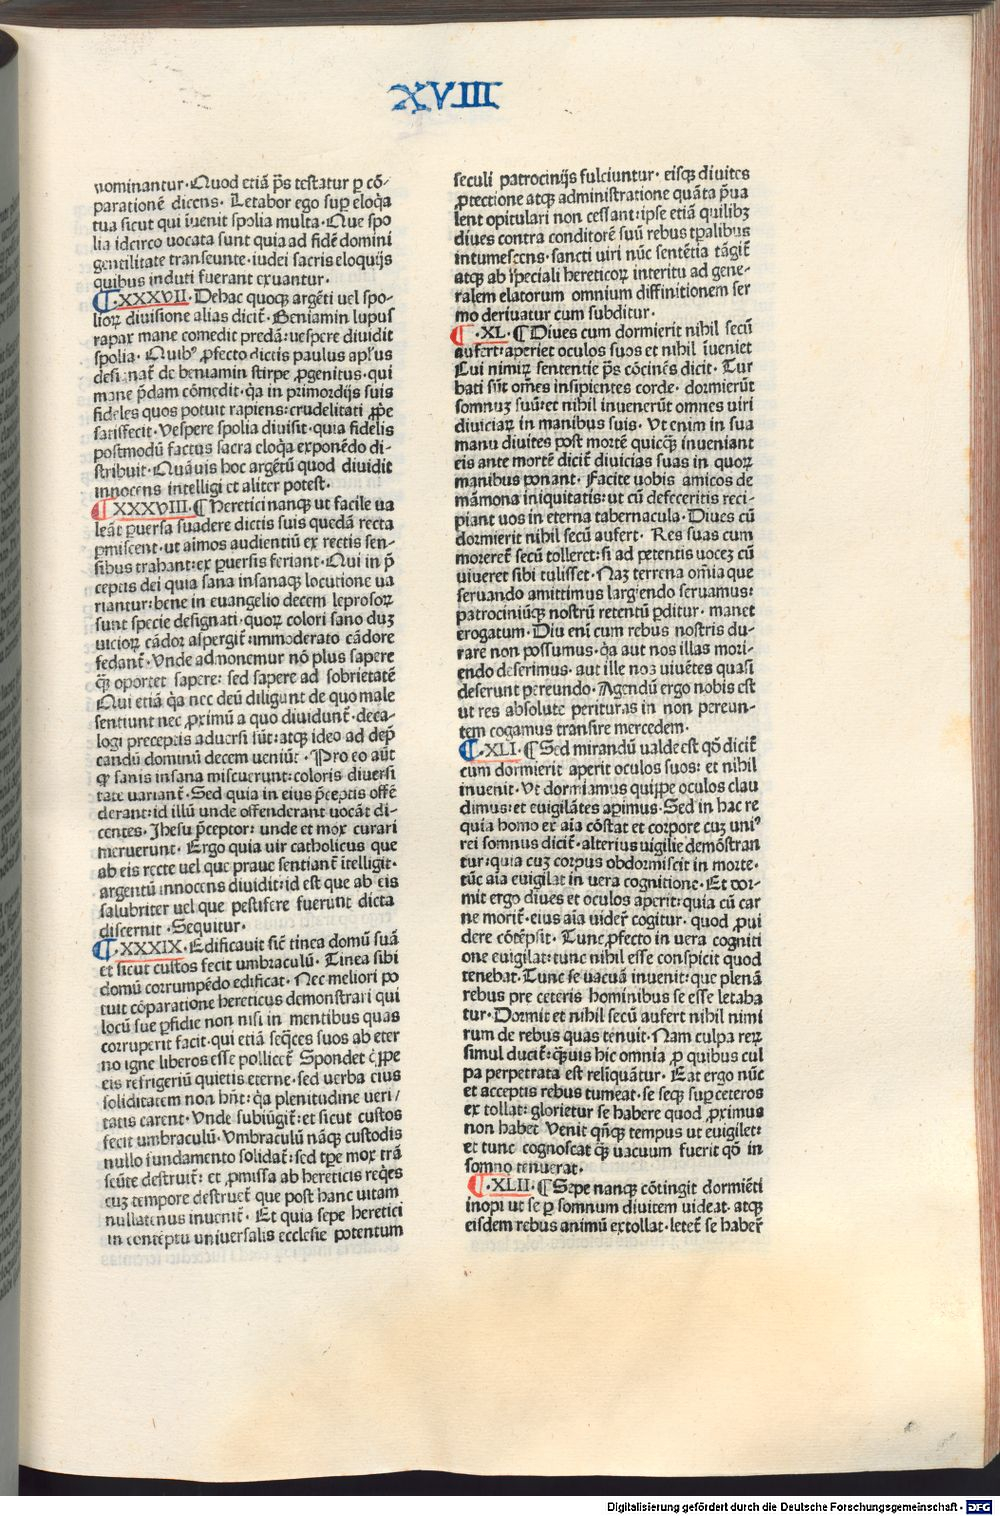 XVIII
nominantur. Quod etiã p̃s testatur ꝑ cõ-
parationẽ dicens. Letabor ego suꝑ eloq̃a
tua sicut qui ĩuenit spolia multa. Que spo
lia idcirco uocata sunt quia ad fidẽ domini
gentilitate transeunte. iudei sacris eloquijs
quibus induti fuerant exuantur.
¶.XXXVII. Dehac quoqꝫ argẽti uel spo-
lioꝝ diuisione alias dicit̃. Beniamin lupus
rapax mane comedit predã: uespere diuidit
spolia. Quibꝰ ꝓfecto dictis paulus apl̃us
desi nat̃ de beniamin stirpe ꝓgenitus. qui
mane p̃dam cõmedit. q̃a in primordijs suis
fideles quos potuit rapiens: crudelitati ꝓp̃e
satisfecit. Vespere spolia diuisit. quia fidelis
postmodũ factus sacra eloq̃a exponẽdo di-
stribuit. Quãuis hoc argẽtũ quod diuidit
innocens intelligi et aliter potest.
¶XXXVIII. ¶ Heretici nanqꝫ ut facile ua
leãt ꝑuersa suadere dictis suis quedã recta
ꝑmiscent. ut aĩmos audientiũ ex rectis sen-
sibus trahant: ex ꝑuersis feriant. Qui in p̃
ceptis dei quia sana insanaqꝫ locutione ua
riantur: bene in euangelio decem leprosoꝝ
sunt specie designati. quoꝝ colori sano duꝫ
uicioꝝ cãdor aspergit̃: immoderato cãdore
fedant̃. Vnde admonemur nõ plus sapere
qꝫ̃ oportet sapere: sed sapere ad sobrietatẽ
Qui etiã q̃a nec deũ diligunt de quo male
sentiunt nec ꝓximũ a quo diuidunt̃. deca-
logi preceptis aduersi sũt: atqꝫ ideo ad dep̃
candũ dominũ decem veniũt. Pro eo aũt
ꝙ sanis insana miscuerunt: coloris diuersi
tate variant̃. Sed quia in eius p̃ceptis offẽ
derant: id illũ unde offenderant uocãt di-
centes. Jhesu p̃ceptor: unde et mox curari
meruerunt. Ergo quia uir catholicus que
ab eis recte uel que praue sentiant̃ ĩtelligit.
argentũ innocens diuidit: id est que ab eis
salubriter uel que pestifere fuerunt dicta
discernit. Sequitur.
¶.XXXIX. Edificauit sic̃ tinea domũ suã
et sicut custos fecit umbraculũ. Tinea sibi
domũ corrumpẽdo edificat. Nec meliori po
tuit cõparatione hereticus demonstrari qui
locũ sue ꝑfidie non nisi in mentibus quas
corruperit facit. qui etiã seq̃ces suos ab eter
no igne liberos esse pollicet̃ Spondet q̃ppe
eis refrigeriũ quietis eterne. sed uerba eius
soliditatem non hñt: q̃a plenitudine ueri/
tatis carent. Vnde subiũgit̃: et sicut custos
fecit umbraculũ. Vmbraculũ nãqꝫ custodis
nullo fundamento solidat̃: sed tꝑe mox trã
seũte destruit̃: et ꝓmissa ab hereticis req̃es
cuꝫ tempore destruet̃ que post hanc uitam
nullatenus inuenit̃. Et quia sepe heretici
in contẽptu uniuersalis ecclesie potentum
seculi patrocinijs fulciuntur. eisqꝫ diuites
ꝓtectione atqꝫ administratione quãta p̃ua
lent opitulari non cessant: ipse etiã quilibꝫ
diues contra conditorẽ suũ rebus tꝑalibus
intumescens. sancti uiri nũc sentẽtia tãgit̃
atqꝫ ab ĩspeciali hereticoꝝ interitu ad gene-
ralem elatorum omnium diffinitionem ser
mo deriuatur cum subditur.
¶.XL. ¶ Diues cum dormierit nihil secũ
aufert: aperiet oculos suos et nihil ĩueniet
Cui nimiꝝ sententie p̃s cõcinẽs dicit. Tur
bati sũt om̃es insipientes corde. dormierũt
somnuꝫ suũ: et nihil inuenerũt omnes uiri
diuiciaꝝ in manibus suis. Vt enim in sua
manu diuites post mortẽ quicqꝫ̃ inueniant
eis ante mortẽ dicit̃ diuicias suas in quoꝝ
manibus ponant. Facite uobis amicos de
mãmona iniquitatis: ut cũ defeceritis reci-
piant uos in eterna tabernacula. Diues cũ
dormierit nihil secũ aufert. Res suas cum
moreret̃ secũ tolleret: si ad petentis uoceꝫ cũ
viueret sibi tulisset. Naꝫ terrena om̃ia que
seruando amittimus largiendo seruamus:
patrociniũqꝫ nostrũ retentũ ꝑditur. manet
erogatum. Diu eni cum rebus nostris du-
rare non possumus. q̃a aut nos illas mori-
endo deserimus. aut ille nos viuẽtes quasi
deserunt pereundo. Agendũ ergo nobis est
ut res absolute perituras in non pereun-
tem cogamus transire mercedem.
¶.XLI. ¶ Sed mirandũ ualde est qõ dicit̃
cum dormierit aperit oculos suos: et nihil
inuenit. Vt dormiamus quippe oculos clau
dimus: et euigilãtes aꝑimus. Sed in hac re
quia homo ex aĩa cõstat et corpore cuꝫ uniꝰ
rei somnus dicit̃. alterius uigilie demõstran
tur: quia cuꝫ corpus obdormiscit in morte.
tũc aĩa euigilat in vera cognitione. Et dor-
mit ergo diues et oculos aperit: quia cũ car
ne morit̃. eius aĩa uider̃ cogitur. quod ꝓui
dere cõtẽpsit. Tunc ꝓfecto in vera cogniti
one euigilat: tunc nihil esse conspicit quod
tenebat. Tunc se vacuã inuenit: que plenã
rebus pre ceteris hominibus se esse letaba
tur. Dormit et nihil secũ aufert nihil nimi
rum de rebus quas tenuit. Nam culpa reꝝ
simul ducit̃: qꝫ̃uis hic omnia ꝓ quibus cul
pa perpetrata est relĩquãtur. Eat ergo nũc
et acceptis rebus tumeat. se seqꝫ suꝑ ceteros
ex tollat: glorietur se habere quod ꝓximus
non habet Venit qñqꝫ tempus ut euigilet:
et tunc cognoscat qꝫ̃ vacuum fuerit qõ in
somno tenuerat.
¶.XLII. ¶ Sepe nanqꝫ cõtingit dormiẽti
inopi ut se ꝑ somnum diuitem uideat. atqꝫ
eisdem rebus animũ extollat. letet̃ se haber̃
Digitalisierung gefördert durch die Deutsche Forschungsgemeinschaft - DFG